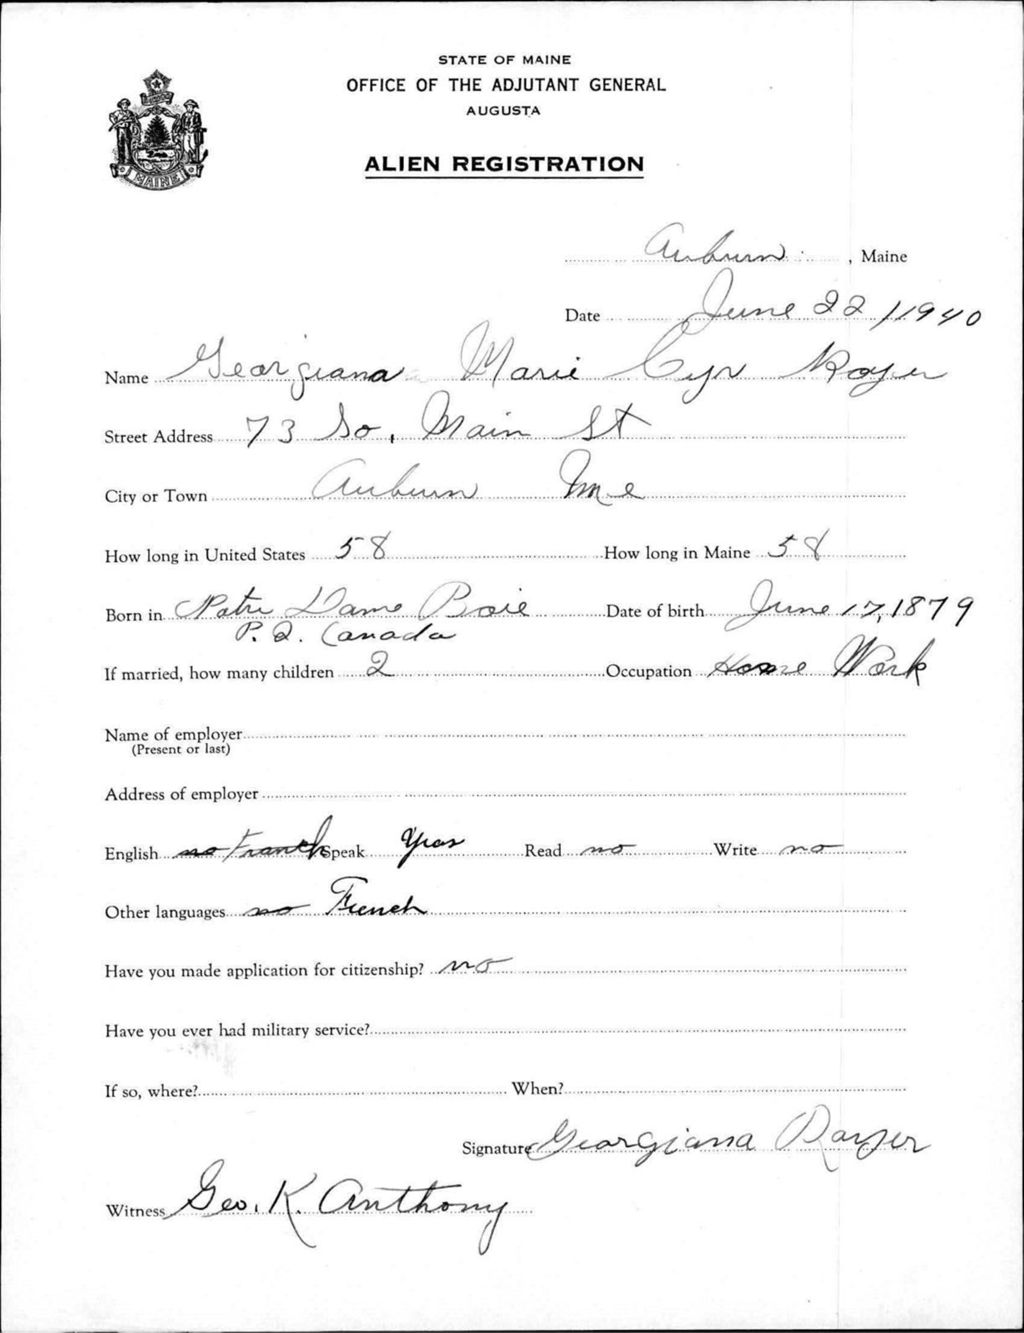 STATE OF MAINE
OFFICE OF THE ADJUTANT GENERAL
AUGUSTA
MAINE
ALIEN REGISTRATION
Auburn, Maine
Date June 22/1940
Name Georgiana Marie Cyr Royer
Street Address 73 So, Main St
City or Town Auburn Me
How long in United States 58 How long in Maine 58
Born in Notre Dame Boie Date of birth June 17, 1879
P.Q. Canada
If married, how many children 2 Occupation Home Work
Name of employer
(Present or last)
Address of employer
English no French Speak Yes Read no Write no
Other languages no French
Have you made application for citizenship? no
Have you ever had military service?
If so, where? When?
Signature Georgiana Royer
Witness Geo. K. Anthony